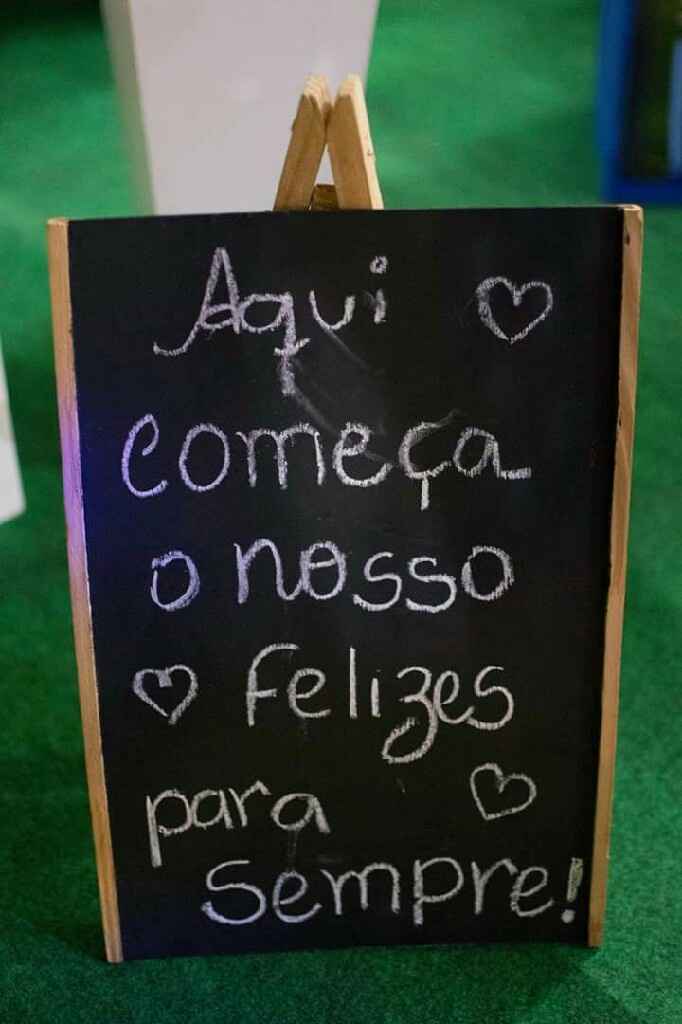 Aqui
começa
o nosso
felizes
para
sempre!